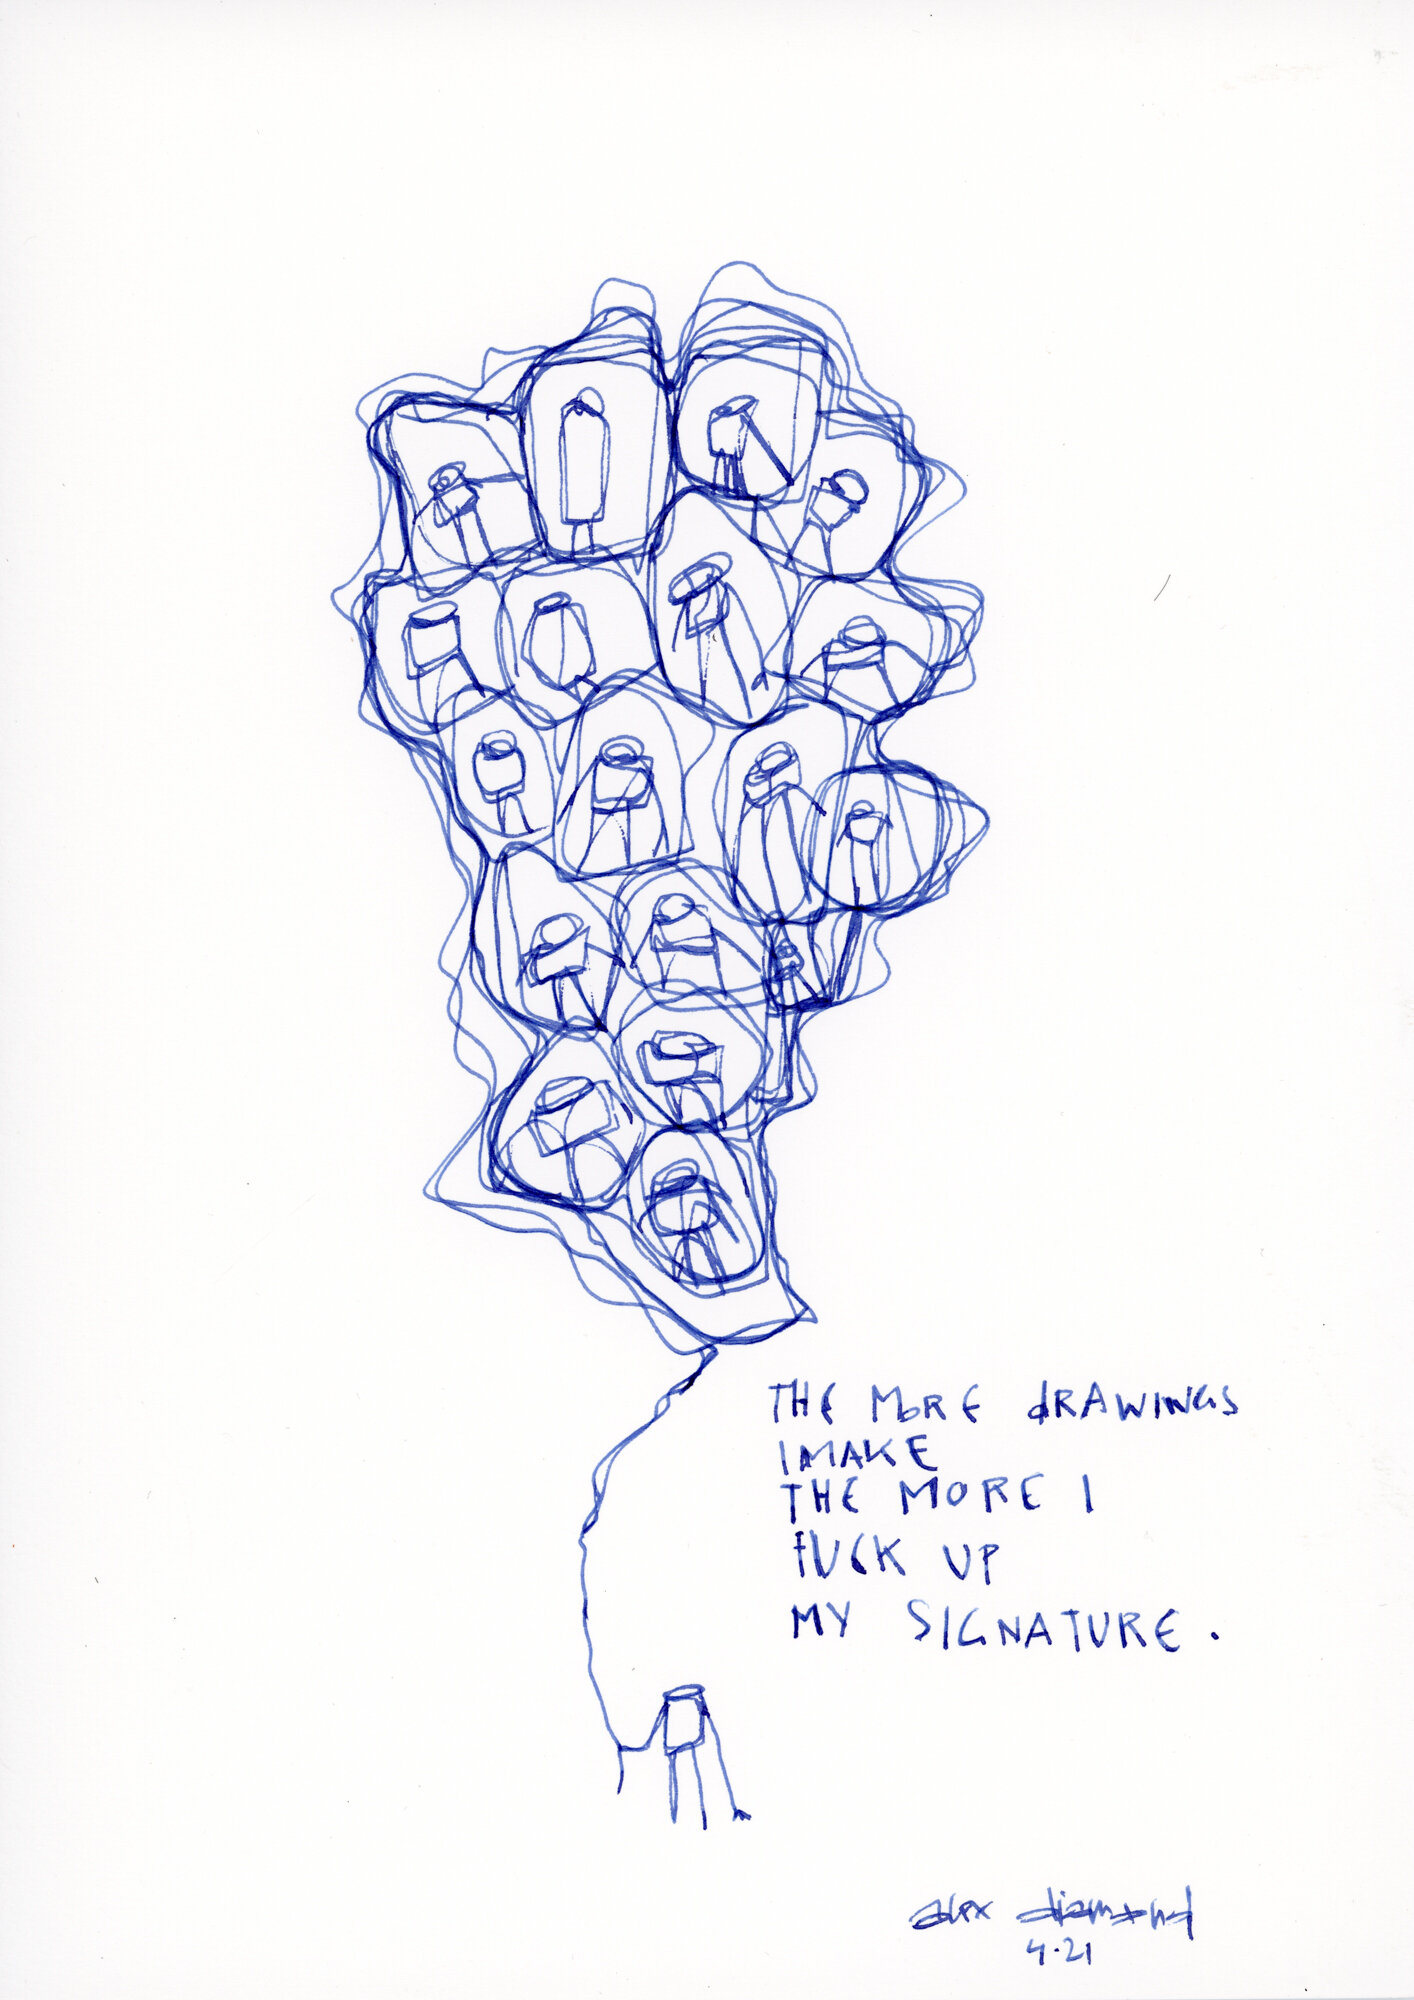 THE MORE dRAWINGS
I MAKE
THE MORE I
FUCK UP
MY SIGNATURE.
alex diamond
4.21